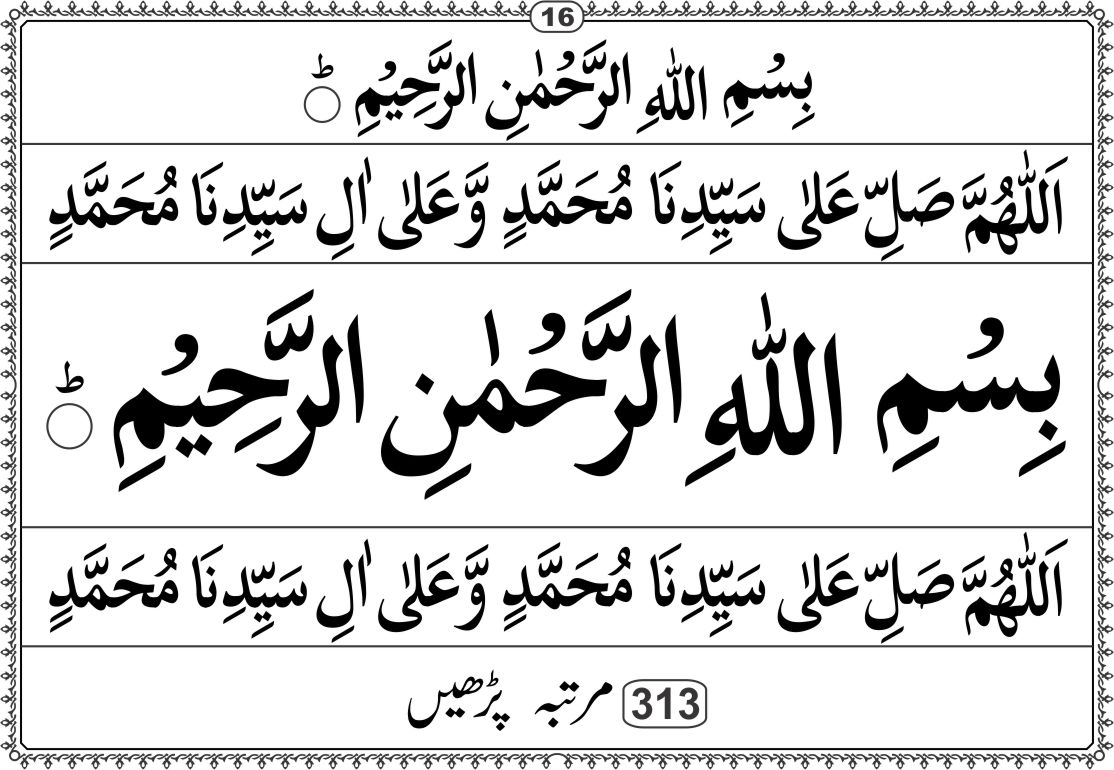 16
بِسْمِ اللّٰهِ الرَّحْمٰنِ الرَّحِيْمِ ○ؕ
اَللّٰهُمَّ صَلِّ عَلٰى سَيِّدِنَا مُحَمَّدٍ وَّعَلٰى اٰلِ سَيِّدِنَا مُحَمَّدٍ
بِسْمِ اللّٰهِ الرَّحْمٰنِ الرَّحِيْمِ ○ؕ
اَللّٰهُمَّ صَلِّ عَلٰى سَيِّدِنَا مُحَمَّدٍ وَّعَلٰى اٰلِ سَيِّدِنَا مُحَمَّدٍ
313 مرتبہ پڑھیں